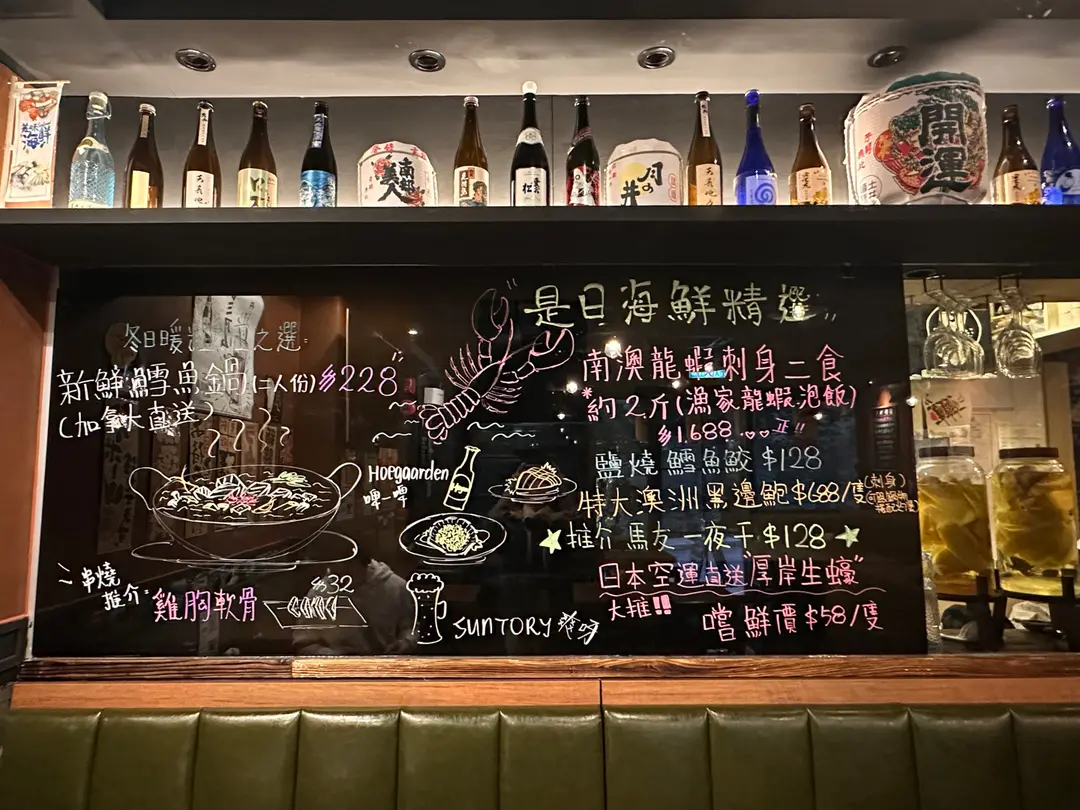 開運
南部美人
月の井
冬日暖
之選:
新鮮鱈魚鍋(二人份)$228
(加拿大直送)
Hoegaarden
啤一啤
串燒
推介:
雞胸軟骨
$32
SUNTORY
"是日海鮮精選"
南澳龍蝦刺身二食
*約2斤(漁家龍蝦泡飯)
$1,688
鹽燒鱈魚鮫 $128
特大澳洲黑邊鮑 $688/隻
(刺身)
推介 馬友一夜干 $128
日本空運直送"厚岸生蠔"
大推!!
嚐鮮價 $58/隻